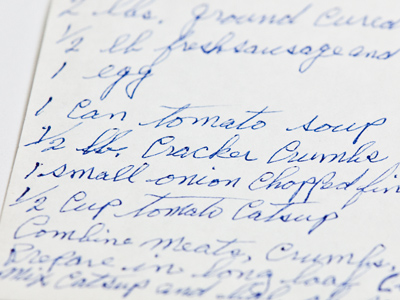 2 lbs. ground cured
1/2 lb fresh sausage and
1 egg
1 can tomato soup
1/2 lb. Cracker Crumbs
1 small onion chopped fin
1/2 Cup tomato Catsup
Combine meats, crumbs,
Prepare in long loaf
Mix Catsup and